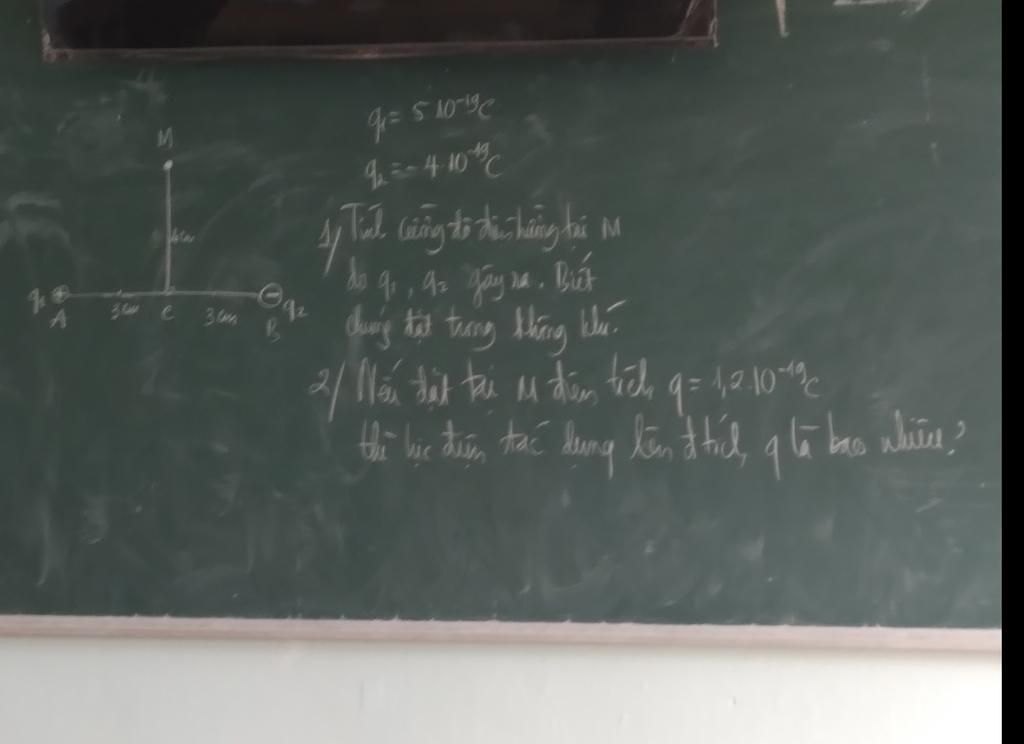 M
4cm
q₁ ⊕ ⊖ q₂
A 3cm C 3cm B
q₁ = 5 10⁻¹⁹C
q₂ = -4 10⁻¹⁹C
1/ Tính cường độ điện trường tại M
do q₁, q₂ gây ra. Biết
chúng đặt trong không khí.
2/ Nếu đặt tại M điện tích q = 1,2.10⁻¹⁹C
thì lực điện tác dụng lên đtích q là bao nhiêu?